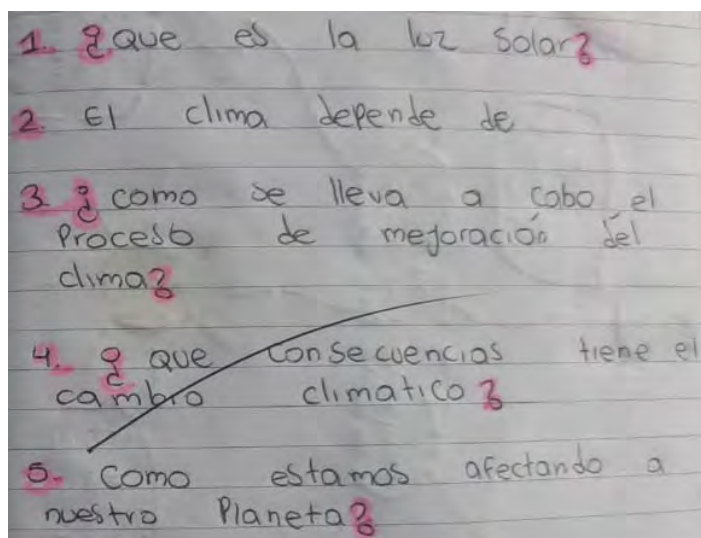 1. ¿Que es la luz Solar?
2. El clima depende de
3. ¿como se lleva a cabo el
Proceso de mejoración del
clima?
4. ¿que consecuencias tiene el
cambio climatico?
5. Como estamos afectando a
nuestro Planeta?